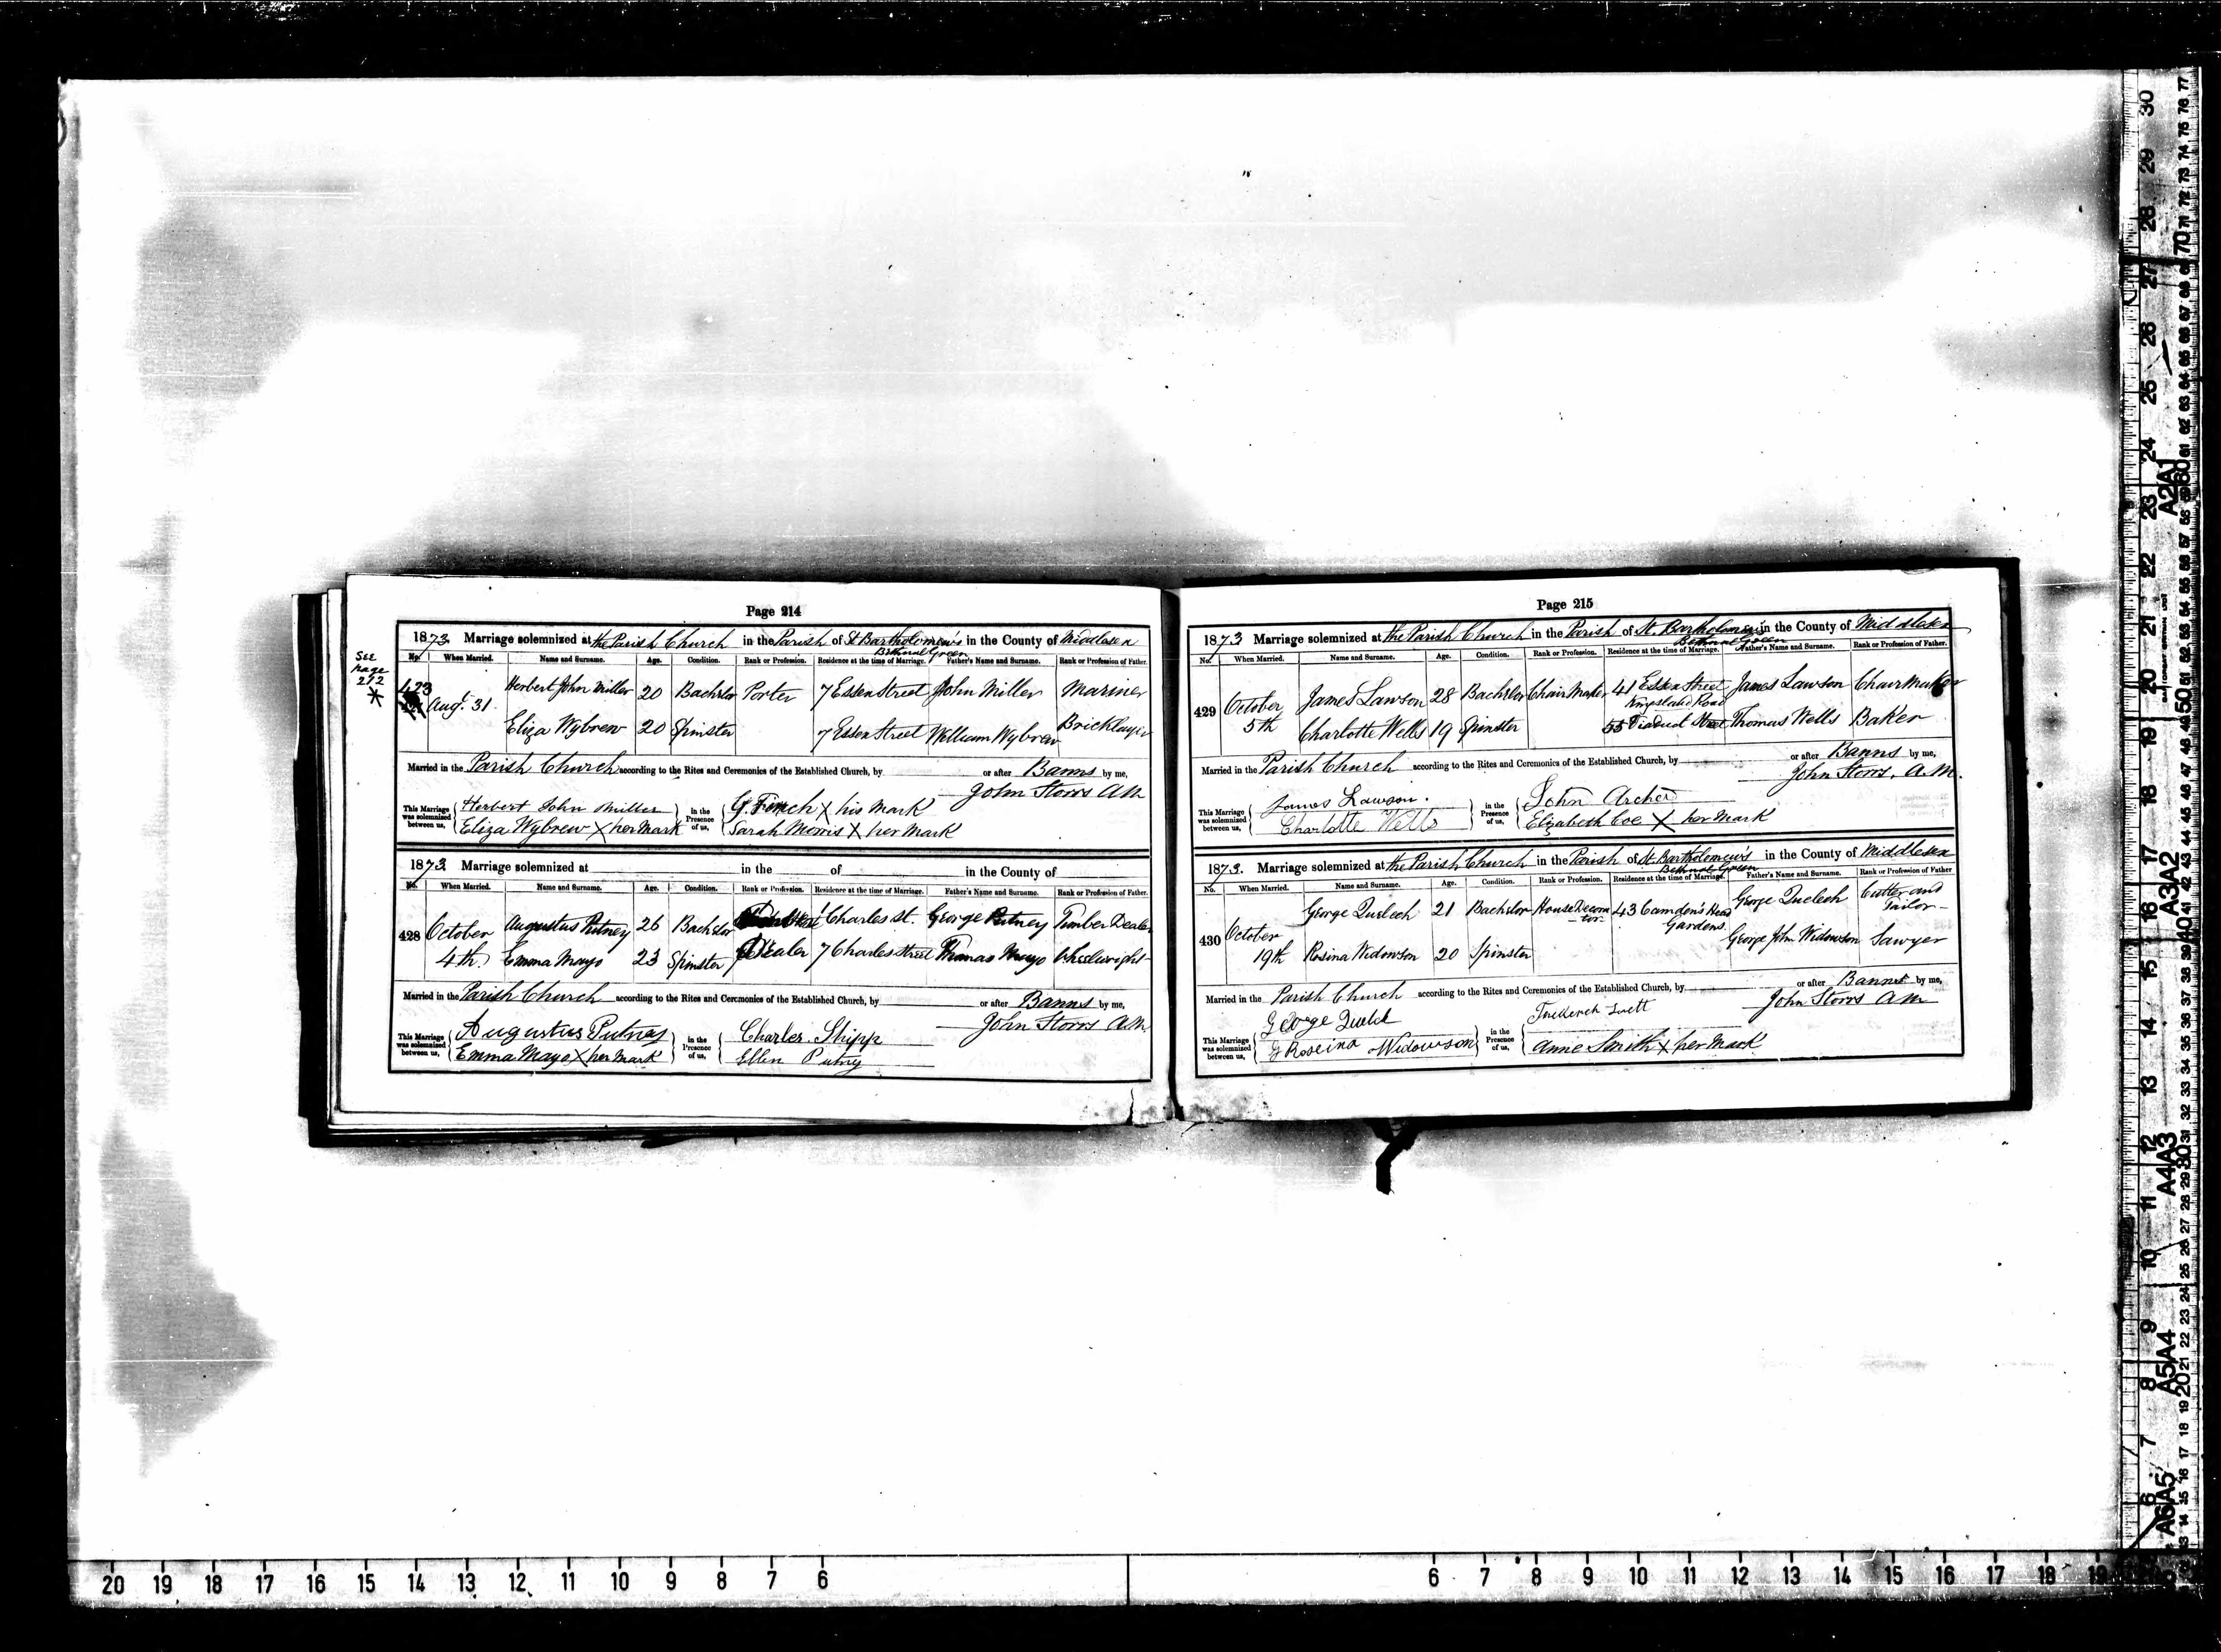 Page 214
1873. Marriage solemnized at the Parish Church in the Parish of St Bartholomew's in the County of Middlesex
Bethnal Green
See page 212
*
No. When Married. Name and Surname. Age. Condition. Rank or Profession. Residence at the time of Marriage. Father's Name and Surname. Rank or Profession of Father.
423 Aug. 31 Herbert John Miller 20 Bachelor Porter 7 Essex Street John Miller Mariner
Eliza Wybrew 20 Spinster 7 Essex Street William Wybrew Bricklayer
Married in the Parish Church according to the Rites and Ceremonies of the Established Church, by or after Banns by me,
John Storrs AM
This Marriage was solemnized between us, Herbert John Miller in the Presence of us, G. Finch X his Mark
Eliza Wybrew X her Mark Sarah Morris X her Mark
1873. Marriage solemnized at in the of in the County of
No. When Married. Name and Surname. Age. Condition. Rank or Profession. Residence at the time of Marriage. Father's Name and Surname. Rank or Profession of Father.
428 October 4th. Augustus Putney 26 Bachelor Charles St. George Putney Timber Dealer
Emma Mayo 23 Spinster Dealer 7 Charles Street Thomas Mayo Wheelwright
Married in the Parish Church according to the Rites and Ceremonies of the Established Church, by or after Banns by me,
John Storrs A.M.
This Marriage was solemnized between us, Augustus Putney in the Presence of us, Charles Shipp
Emma Mayo X her Mark Ellen Putney
Page 215
1873 Marriage solemnized at the Parish Church in the Parish of St. Bartholomew in the County of Middlesex
Bethnal Green
No. When Married. Name and Surname. Age. Condition. Rank or Profession. Residence at the time of Marriage. Father's Name and Surname. Rank or Profession of Father.
429 October 5th James Lawson 28 Bachelor Chair Maker 41 Essex Street Kingsland Road James Lawson Chair Maker
Charlotte Wells 19 Spinster 55 Viaduct Street Thomas Wells Baker
Married in the Parish Church according to the Rites and Ceremonies of the Established Church, by or after Banns by me,
John Storrs, A.M.
This Marriage was solemnized between us, James Lawson. in the Presence of us, John Archer
Charlotte Wells Elizabeth Coe X her Mark
1873. Marriage solemnized at the Parish Church in the Parish of St. Bartholomew's in the County of Middlesex
Bethnal Green
No. When Married. Name and Surname. Age. Condition. Rank or Profession. Residence at the time of Marriage. Father's Name and Surname. Rank or Profession of Father
430 October 19th George Quelch 21 Bachelor House Decorator 43 Camden's Head Gardens. George Quelch Cutter and Tailor
Rosina Widowson 20 Spinster George John Widowson Sawyer
Married in the Parish Church according to the Rites and Ceremonies of the Established Church, by or after Banns by me,
John Storrs AM
This Marriage was solemnized between us, George Quelch in the Presence of us, Frederick
Roseina Widowson Anne Smith X her Mark
20 19 18 17 16 15 14 13 12 11 10 9 8 7 6 6 7 8 9 10 11 12 13 14 15 16 17 18 19